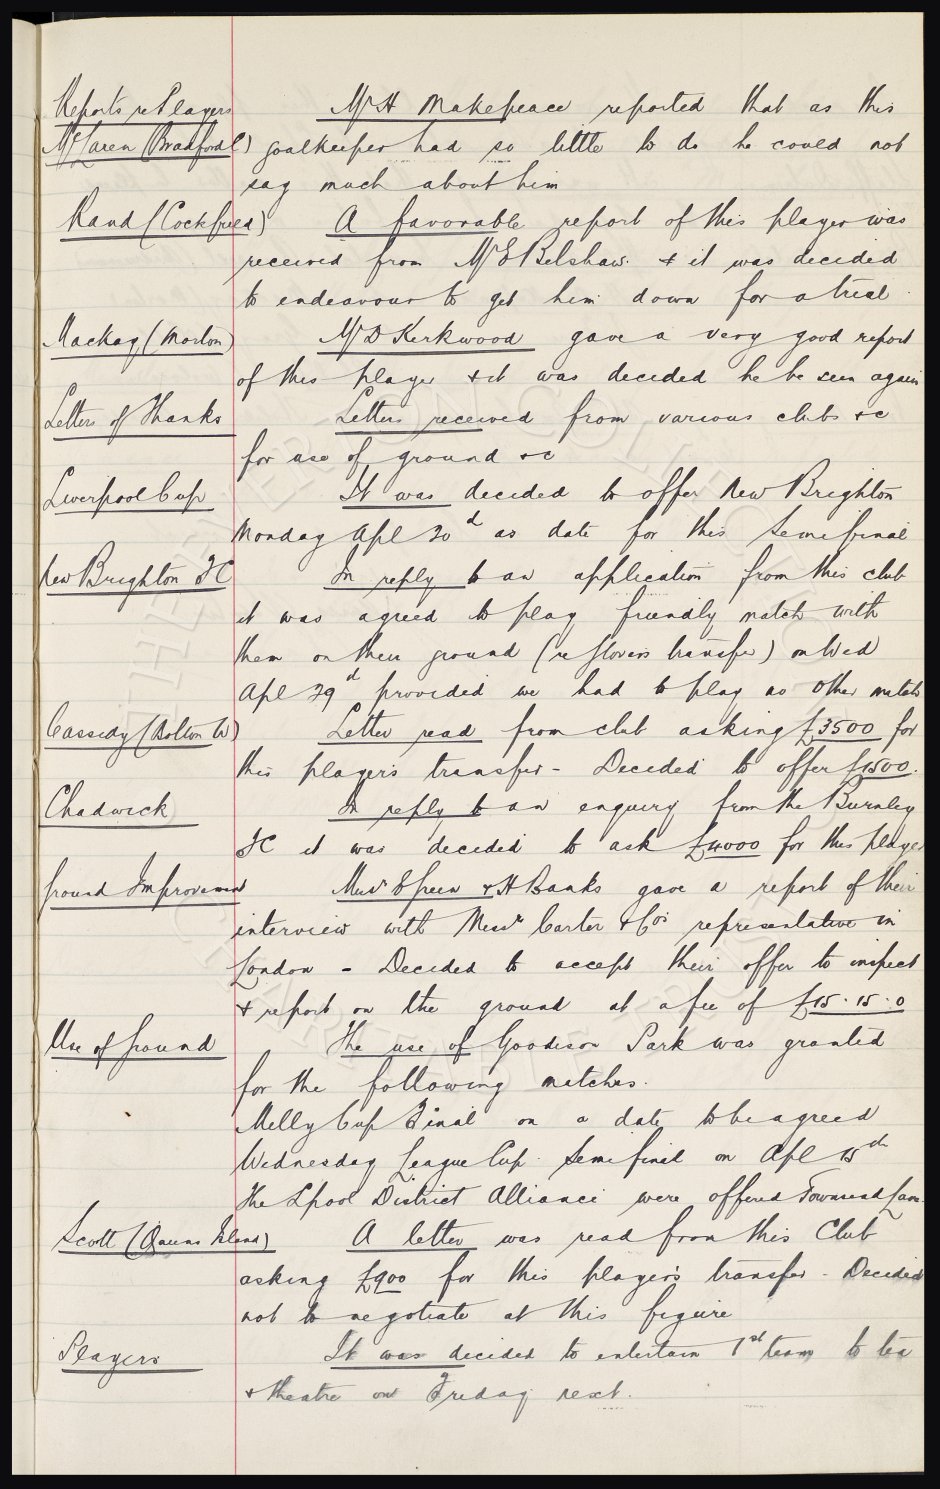 Reports re Players
Mr H Makepeace reported that as this
McLaren (Bradford C)
goalkeeper had so little to do he could not
say much about him
Rand (Cockfield)
A favorable report of this player was
received from Mr E Belshaw. & it was decided
to endeavour to get him down for a trial
Mackay (Morton)
Mr D Kirkwood gave a very good report
of this player & it was decided he be seen again
Letters of Thanks
Letters received from various clubs &c
for use of ground &c
Liverpool Cup
It was decided to offer New Brighton
Monday Apl 20d as date for this Semifinal
New Brighton FC
In reply to an application from this club
it was agreed to play friendly match with
them on their ground (re Glovers transfer) on Wed
Apl 29d provided we had to play no other match
Cassidy (Bolton W)
Letter read from club asking £3500 for
this players transfer - Decided to offer £1500.
Chadwick
In reply to an enquiry from the Burnley
FC it was decided to ask £4000 for this player
Ground Improvement
Messrs E Green & H Banks gave a report of their
interview with Messrs Carter & Cos representative in
London - Decided to accept their offer to inspect
& report on the ground at a fee of £15.15.0
Use of Ground
The use of Goodison Park was granted
for the following matches.
Melly Cup Final on a date to be agreed
Wednesday League Cup Semifinal on Apl 15th
The Lpool District Alliance were offered Townsend Lane
Scott (Queens Island)
A letter was read from this Club
asking £900 for this players transfer - Decided
not to negotiate at this figure
Players
It was decided to entertain 1st team to tea
& theatre on Friday next.